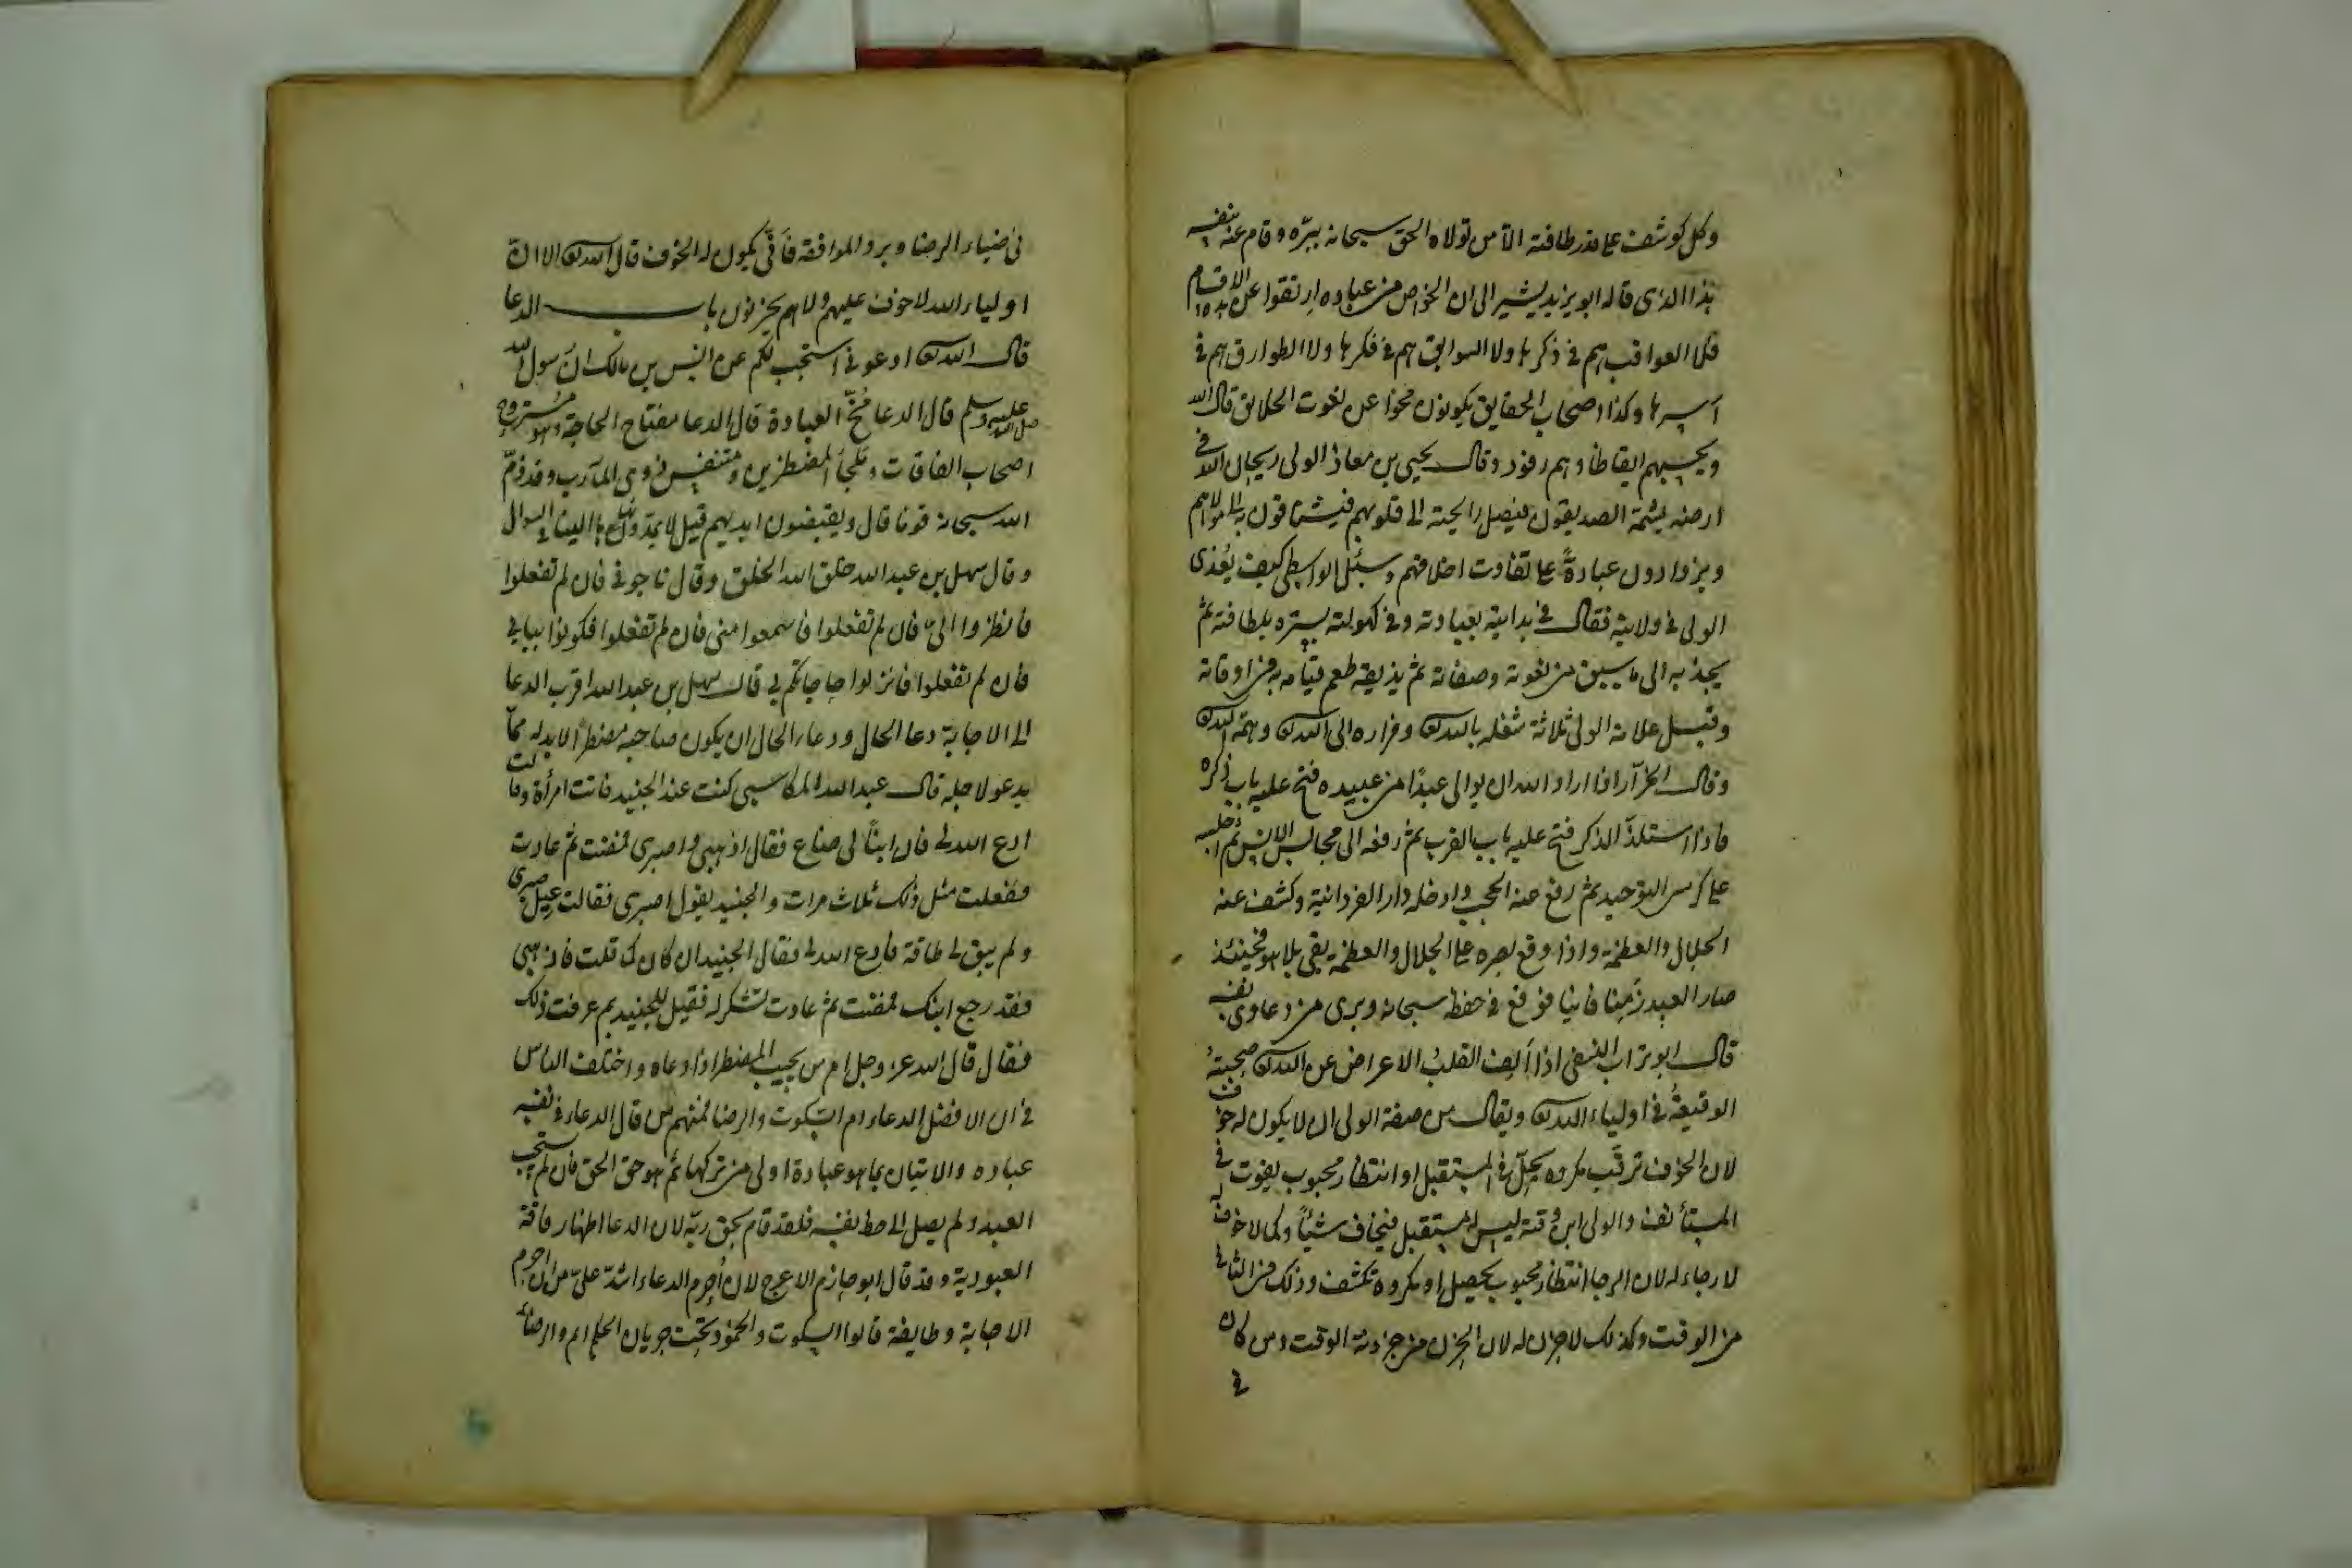 وكل كوشف على قدر طاقته الا من تولاه الحق سبحانه ببره وقام عنه بنفسه
هذا الذى قاله ابو يزيد يشير الى ان الخواص من عباده ارتقوا عن الاقسام
فلا العواقب هم فى ذكرها ولا السوابق هم فى فكرها ولا الطوارق هم فى
اسرها وكذا اصحاب الحقايق يكونون محوا عن نعوت الخلايق قال الله
وتحسبهم ايقاظا وهم رقود وقال يحيى بن معاذ الولى ريحان الله فى
ارضه يشمه الصديقون فيصل رايحته الى قلوبهم فيشتاقون به الى مولاهم
ويزدادون عبادةً على تفاوت اخلاقهم وسئل الواسطى كيف يُغذى
الولى فى ولايته فقال فى بدايته بعبادته وفى كهولته بستره بلطافته ثم
يجذبه الى ما سبق من نعوته وصفاته ثم يذيقه طعم قيامه به فى اوقاته
وقيل علامة الولى ثلاثة شغله بالله تعالى وفراره الى الله تعالى وهمه الله تعالى
وقال الخرّاز اذا اراد الله ان يوالى عبدًا من عبيده فتح عليه باب ذكره
فاذا استلذّ الذكر فتح عليه باب القرب ثم رفعه الى مجالس الانس ثم اجلسه
على كرسى التوحيد ثم رفع عنه الحجب وادخله دار الفردانية وكشف عنه
الجلال والعظمة واذا وقع بصره على الجلال والعظمة بقى بلا هو فحينئذ
صار العبد زَمِنا فانيا فوقع فى حفظ سبحانه وبرى من دعاوى نفسه
قال ابو تراب النخشبى اذا اَلِف القلبُ الاعراض عن الله تعالى صحبته
الوقيعةُ فى اولياء الله تعالى ويقال من صفة الولى ان لا يكون له خوف
لان الخوف ترقّب مكروه يحلّ فى المستقبل او انتظار محبوب يفوت فى
المستأنف والولى ابن وقته ليس له مستقبل فيخاف شيئًا وكما لا خوف له
لا رجاء له لان الرجا انتظار محبوب يحصل او مكروه تكشف وذلك فى الثانى
من الوقت وكذلك لا حزن له لان الحزن من حزونة الوقت ومن كان
فى
فى ضياء الرضا وبرد الموافقة فاَنّى يكون له الخوف قال الله تعالى الا ان
اولياء الله لا خوف عليهم ولا هم يحزنون باب الدعا
قال الله تعالى ادعونى استجب لكم عن انس بن مالك ان رسول الله
صلى الله عليه وسلم قال الدعا مُخّ العبادة قال الدعا مفتاح الحاجة وهو مستروح
اصحاب الفاقات وملجأ المضطرين ومتنفس ذوى المآرب وقد ذمّ
الله سبحانه قوما قال ويقبضون ايديهم قيل لا يمدونها الينا فى السوال
وقال سهل بن عبد الله خلق الله الخلق وقال ناجونى فان لم تفعلوا
فانظروا الىّ فان لم تفعلوا فاسمعوا منى فان لم تفعلوا فكونوا ببابى
فان لم تفعلوا فانزلوا حاجاتكم بى قال سهل بن عبد الله اقرب الدعا
الى الاجابة دعا الحال ودعاء الحال ان يكون صاحبه مضطرًا لابد له ممّا
يدعو لاجله قال عبد الله المكاسبى كنت عند الجنيد فاتت امرأة وقالت
ادع الله لى فان ابنًا لى ضاع فقال اذهبى واصبرى فمضت ثم عادت
ففعلت مثل ذلك ثلاث مرات والجنيد يقول اصبرى فقالت عيل صبرى
ولم يبق لى طاقة فادع الله لى فقال الجنيد ان كان كما قلت فاذهبى
فقد رجع ابنك فمضت ثم عادت تشكر له فقيل للجنيد بم عرفت ذلك
فقال قال الله عز وجل ام من يجيب المضطر اذا دعاه واختلف الناس
فى ان الافضل الدعاء ام السكوت والرضا فمنهم من قال الدعاء فى نفسه
عباده والاتيان بما هو عبادة اولى من تركها ثم هو حق الحق فان لم يستجب
العبد ولم يصل الى حظ نفسه فلقد قام بحق ربّه لان الدعا اظهار فاقة
العبودية وقد قال ابو حازم الاعرج لان اُحرم الدعاء اشدّ علىّ من ان احرم
الاجابة وطايفة قالوا السكوت والخمود تحت جريان الحكم اتم والرضا